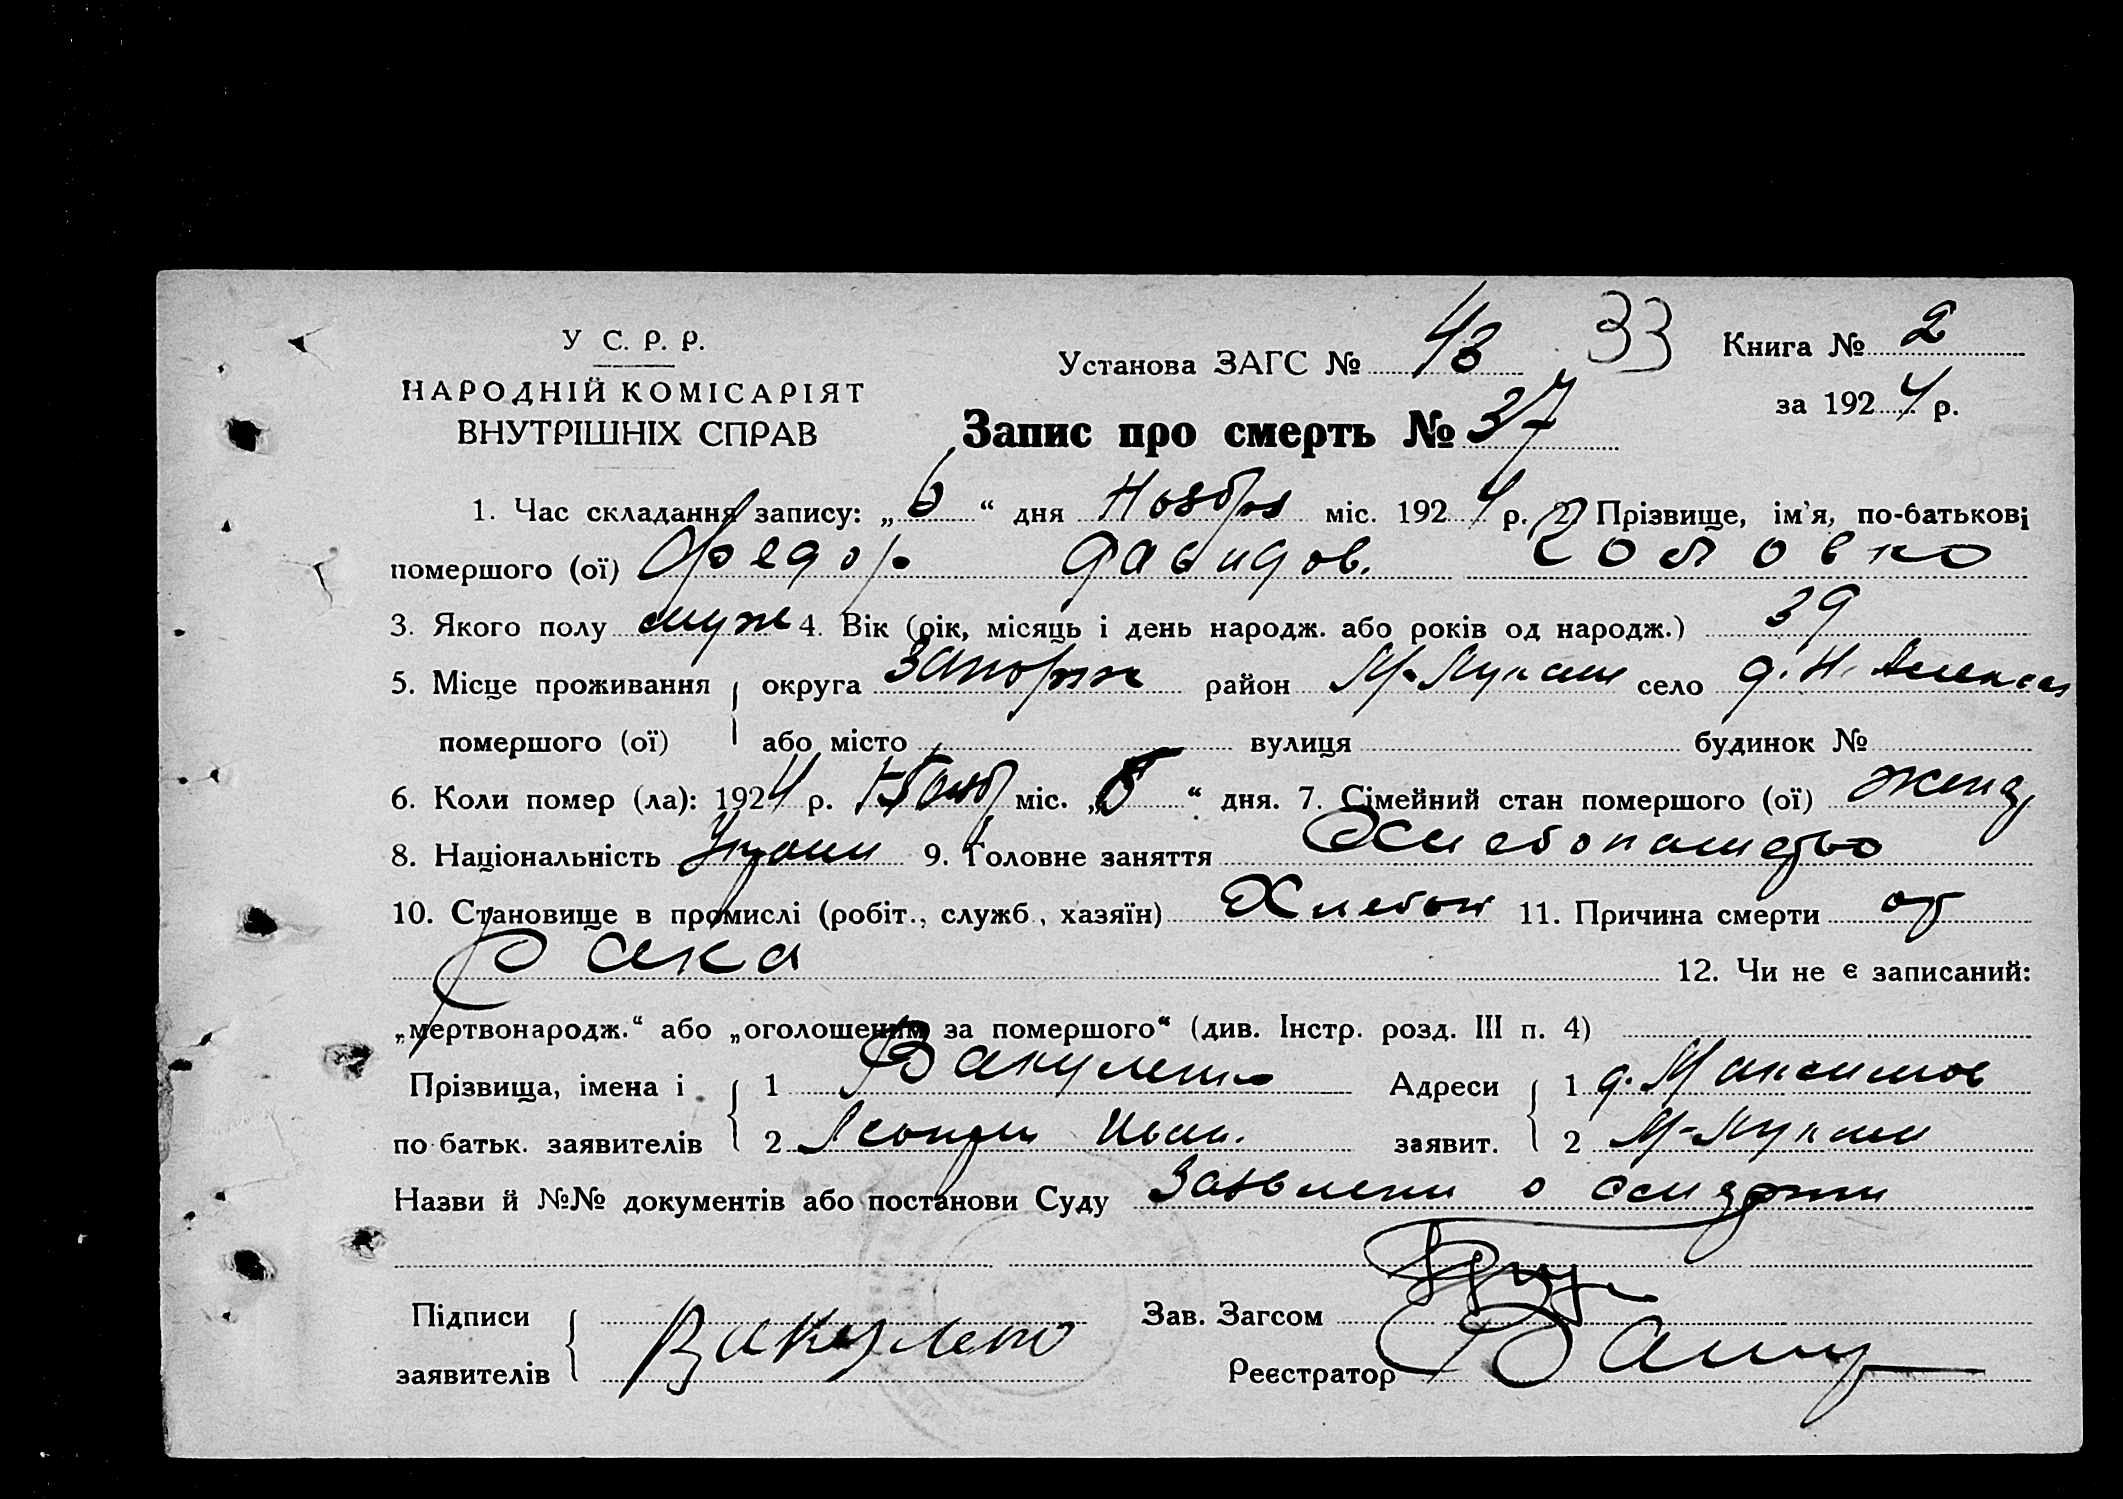 У С. Р. Р.
НАРОДНІЙ КОМІСАРІЯТ
ВНУТРІШНІХ СПРАВ
Установа ЗАГС № 48 33 Книга № 2
за 1924 р.
Запис про смерть № 37
1. Час складання запису: „6“ дня Ноября міс. 1924 р. 2. Прізвище, ім'я, по-батькові
помершого (ої) Федор Давидов.
3. Якого полу муж 4. Вік (рік, місяць і день народж. або років од народж.) 39
5. Місце проживання округа Запорож район М-Лукаш село д. Н.
помершого (ої) або місто вулиця будинок №
6. Коли помер (ла): 1924 р. Нояб міс. „5“ дня. 7. Сімейний стан помершого (ої) женат
8. Національність Украин 9. Головне заняття Хлебопашество
10. Становище в промислі (робіт., служб., хазяїн) Хлебоп 11. Причина смерти от
рака 12. Чи не є записаний:
„мертвонародж.“ або „оголошеним за помершого“ (див. Інстр. розд. III п. 4)
Прізвища, імена і 1 Вакуленко Адреси 1 д. Максимов
по батьк. заявителів 2 Иван. заявит. 2 М-Лукаш
Назви й №№ документів або постанови Суду Заявлени о смерти
Підписи Зав. Загсом
заявителів Вакуленко Реєстратор